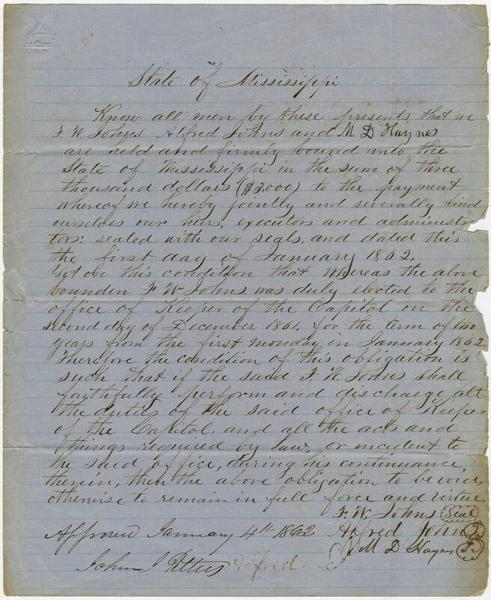 State of Mississippi
Know all men by these presents that we
F. W. Johns Alfred Johns and M D Haynes
are held and firmly bound unto the
State of Mississippi in the sum of three
thousand dollars ($3,000) to the payment
whereof we hereby jointly and severally bind
ourselves our heirs, executors and administra-
tors: sealed with our seals, and dated this
the first day of January 1862.
Yet on this condition that whereas the above
bounden F. W. Johns was duly elected to the
office of Keeper of the Capitol on the
second day of December 1861, for the term of two
years from the first monday in January 1862
Therefore the condition of this obligation is
such that if the said F. W. Johns shall
faithfully perform and discharge all
the duties of the said office of Keeper
of the Capitol and all the acts and
things required by law, or incident to
the said office, during his continuance
therein, then the above obligation to be void,
otherwise to remain in full force and virtue
F. W. Johns Seal
Approved January 4th 1862 Alfred Johns
M D Haynes
John J Pettus Alfred